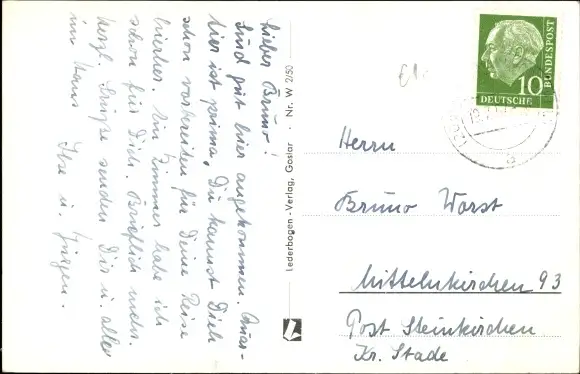 Lieber Bruno!
Sind gut hier angekommen. Quar-
tier ist prima. Du kannst Dich
schon vorbereiten für Deine Reise
hierher. Ein Zimmer habe ich
schon für Dich. Brieflich mehr.
Herzl. Grüße senden Dir u. allen
im Haus Ilse u. Jürgen.
Lederbogen-Verlag, Goslar · Nr. W 2/50
10
BUNDESPOST
DEUTSCHE
Herrn
Bruno Worst
Mittelnkirchen 93
Post Steinkirchen
Kr. Stade